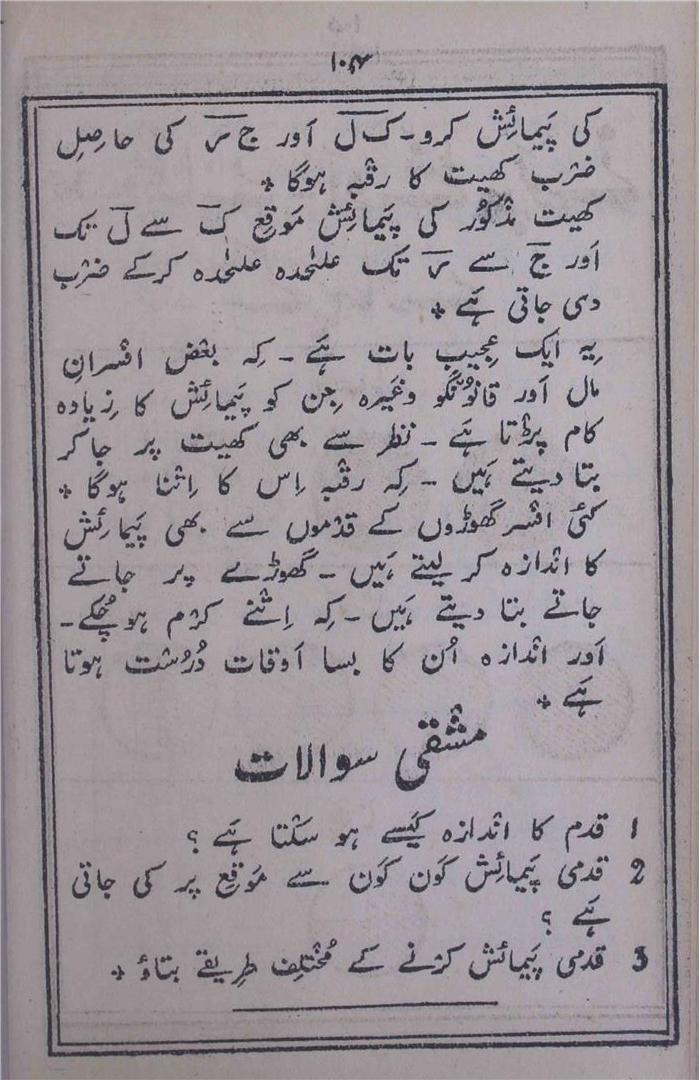 ۱۰۴
کی پَیمائِش کرو۔ ک ل اَور ج س کی حاصِلِ
ضرب کھیت کا رقبہ ہوگا ٭
کھیت مذکُور کی پَیمائِش مَوقع ک سے ل تک
اَور ج سے س تک علیٰحدہ علیٰحدہ کرکے ضرب
دی جاتی ہَے ٭
یِہ ایک عجِیب بات ہَے ۔ کِہ بعض افسرانِ
مال اَور قانُونگو وغَیرہ جِن کو پَیمائِش کا زِیادہ
کام پڑتا ہَے ۔ نظر سے بھی کھیت پر جا کر
بتا دیتے ہَیں ۔ کِہ رقبہ اِس کا اِتنا ہوگا ٭
کئی افسر گھوڑوں کے قدموں سے بھی پَیمائِش
کا اندازہ کر لیتے ہَیں ۔ گھوڑے پر جاتے
جاتے بتا دیتے ہَیں ۔ کِہ اِتنے کرم ہو چُکے ۔
اَور اندازہ اُن کا بسا اَوقات دُرُست ہوتا
ہَے ٭
مشقی سوالات
1 قدم کا اندازہ کَیسے ہو سکتا ہَے ؟
2 قدمی پَیمائِش کَون کَون سے مَوقع پر کی جاتی
ہَے ؟
3 قدمی پَیمائِش کرنے کے مُختلِف طرِیقے بتاؤ ٭